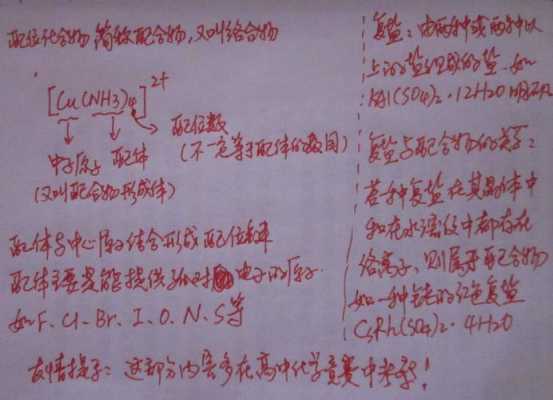 配位化合物 简称配合物,又叫络合物
[Cu(NH3)4]2+
配位数
(不一定等于配体的数目)
中心原子 配体
(又叫配合物形成体)
配体与中心原子结合形成配位
配体主要是能提供孤对电子的原子.
如F. Cl. Br. I. O. N. S等
友情提示:这部分内容多在高中化学竞赛中考察!
复盐:由两种或两种以
上的盐组成的盐.如
KAl(SO4)2·12H2O 明矾
复盐与配合物的关系:
若一种复盐在其晶体中
和在水溶液中都存在
络离子,则属于配合物
如一种铑的红色复盐
CsRh(SO4)2·4H2O